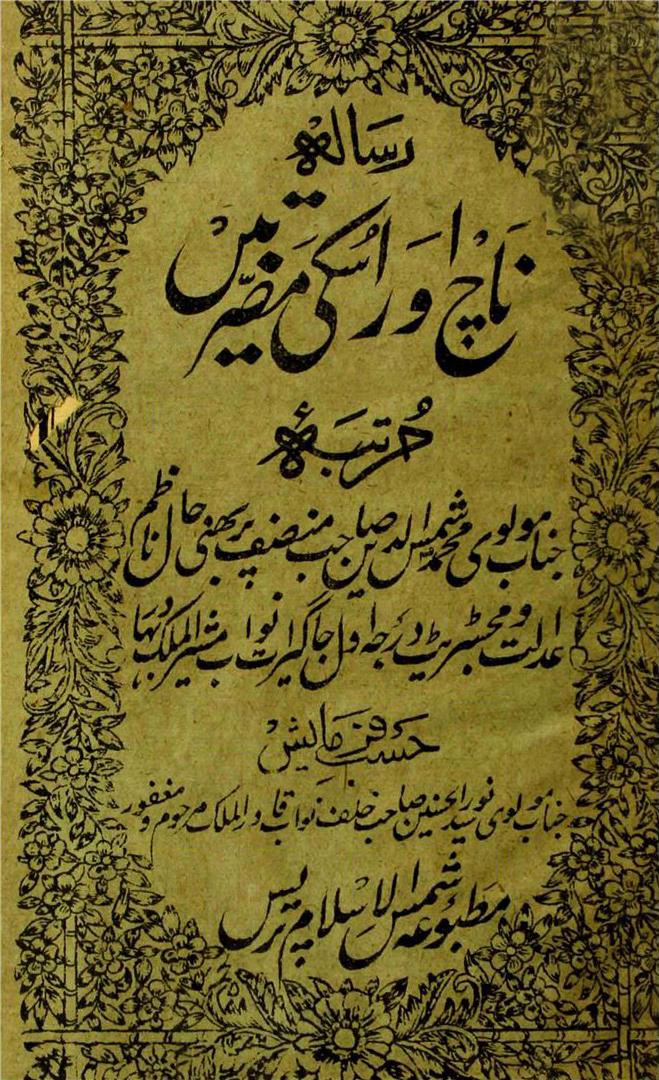 رسالہ
ناچ اور اُسکی مضرّتیں
مُرتبۂ
جناب مولوی محمد شمس الدین صاحب منصف پربھنی حال ناظم
عدالت و مجسٹریٹ درجہ اول جاگیرات نواب مشیر الملک بہادر
حسب فرمایش
جناب مولوی سید نور الحسنین صاحب خلف نواب قادر الملک مرحوم و مغفور
مطبوعہ شمس الاسلام پریس